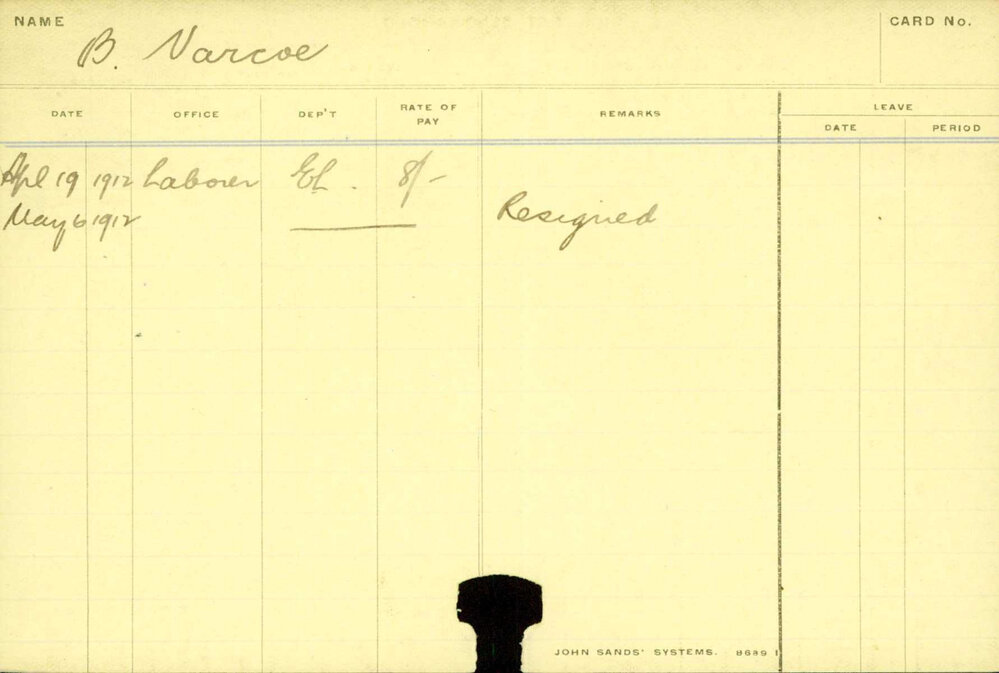 NAME
B. Varcoe
CARD No.
DATE OFFICE DEP'T RATE OF PAY REMARKS LEAVE
DATE PERIOD
Apl 19 1912 Laborer EL. 8/-
May 6 1912 Resigned
JOHN SANDS' SYSTEMS. 8689 1